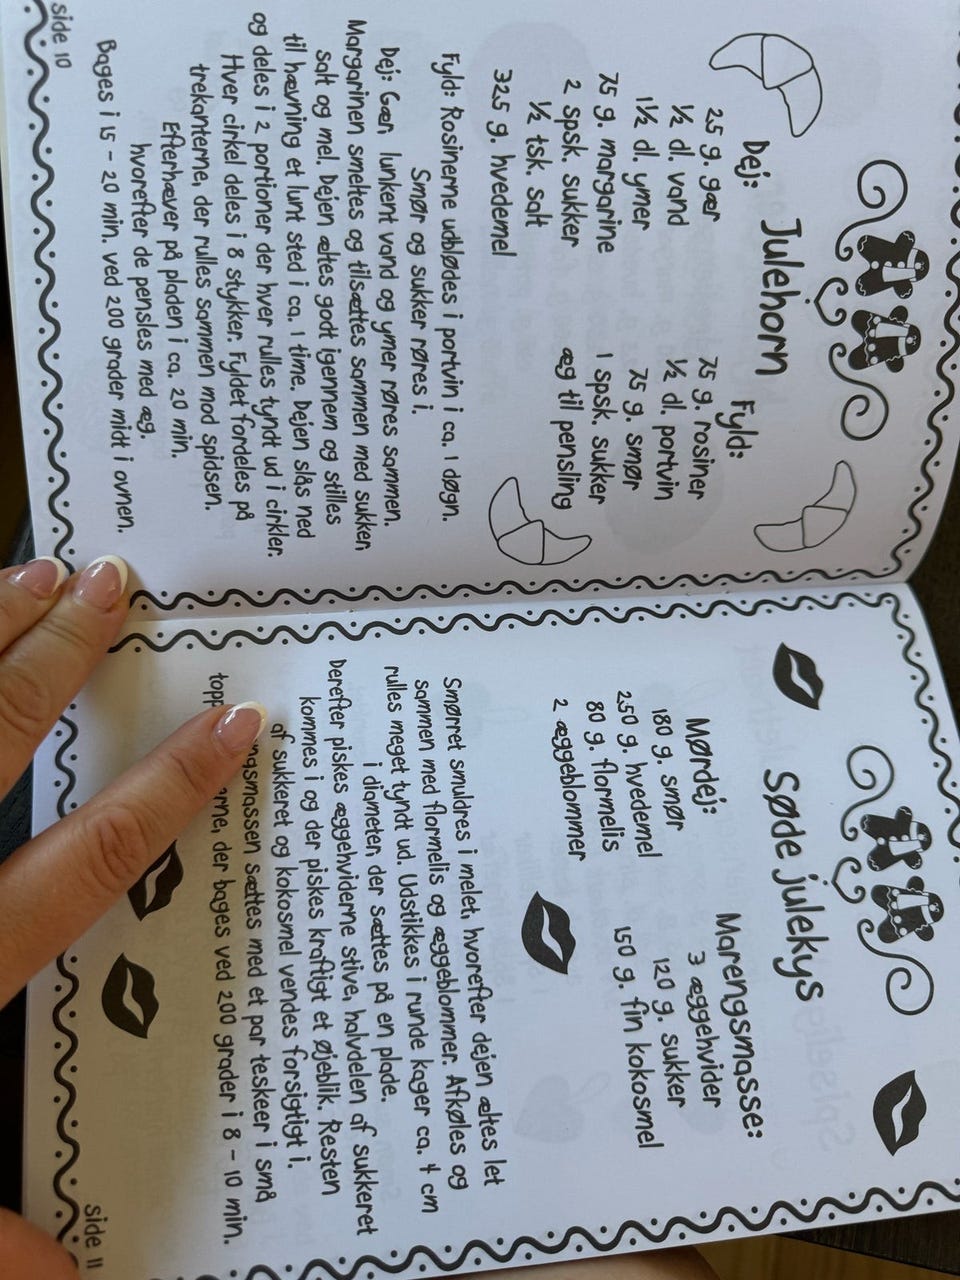 Julehorn
Dej:
25 g. gær
½ dl. vand
1½ dl. ymer
75 g. margarine
2 spsk. sukker
½ tsk. salt
325 g. hvedemel
Fyld:
75 g. rosiner
½ dl. portvin
75 g. smør
1 spsk. sukker
æg til pensling
Fyld: Rosinerne udblødes i portvin i ca. 1 døgn.
Smør og sukker røres i.
Dej: Gær, lunkent vand og ymer røres sammen.
Margarinen smeltes og tilsættes sammen med sukker,
salt og mel. Dejen æltes godt igennem og stilles
til hævning et lunt sted i ca. 1 time. Dejen slås ned
og deles i 2 portioner der hver rulles tyndt ud i cirkler.
Hver cirkel deles i 8 stykker. Fyldet fordeles på
trekanterne, der rulles sammen mod spidsen.
Efterhæver på pladen i ca. 20 min.
hvorefter de pensles med æg.
Bages i 15 - 20 min. ved 200 grader midt i ovnen.
side 10
Søde julekys
Mørdej:
180 g. smør
250 g. hvedemel
80 g. flormelis
2 æggeblommer
Marengsmasse:
3 æggehvider
120 g. sukker
150 g. fin kokosmel
Smørret smuldres i melet, hvorefter dejen æltes let
sammen med flormelis og æggeblommer. Afkøles og
rulles meget tyndt ud. Udstikkes i runde kager ca. 4 cm
i diameter, der sættes på en plade.
Derefter piskes æggehviderne stive, halvdelen af sukkeret
kommes i og der piskes kraftigt et øjeblik. Resten
af sukkeret og kokosmel vendes forsigtigt i.
ngsmassen sættes med et par teskeer i små
topp erne, der bages ved 200 grader i 8 - 10 min.
side 11